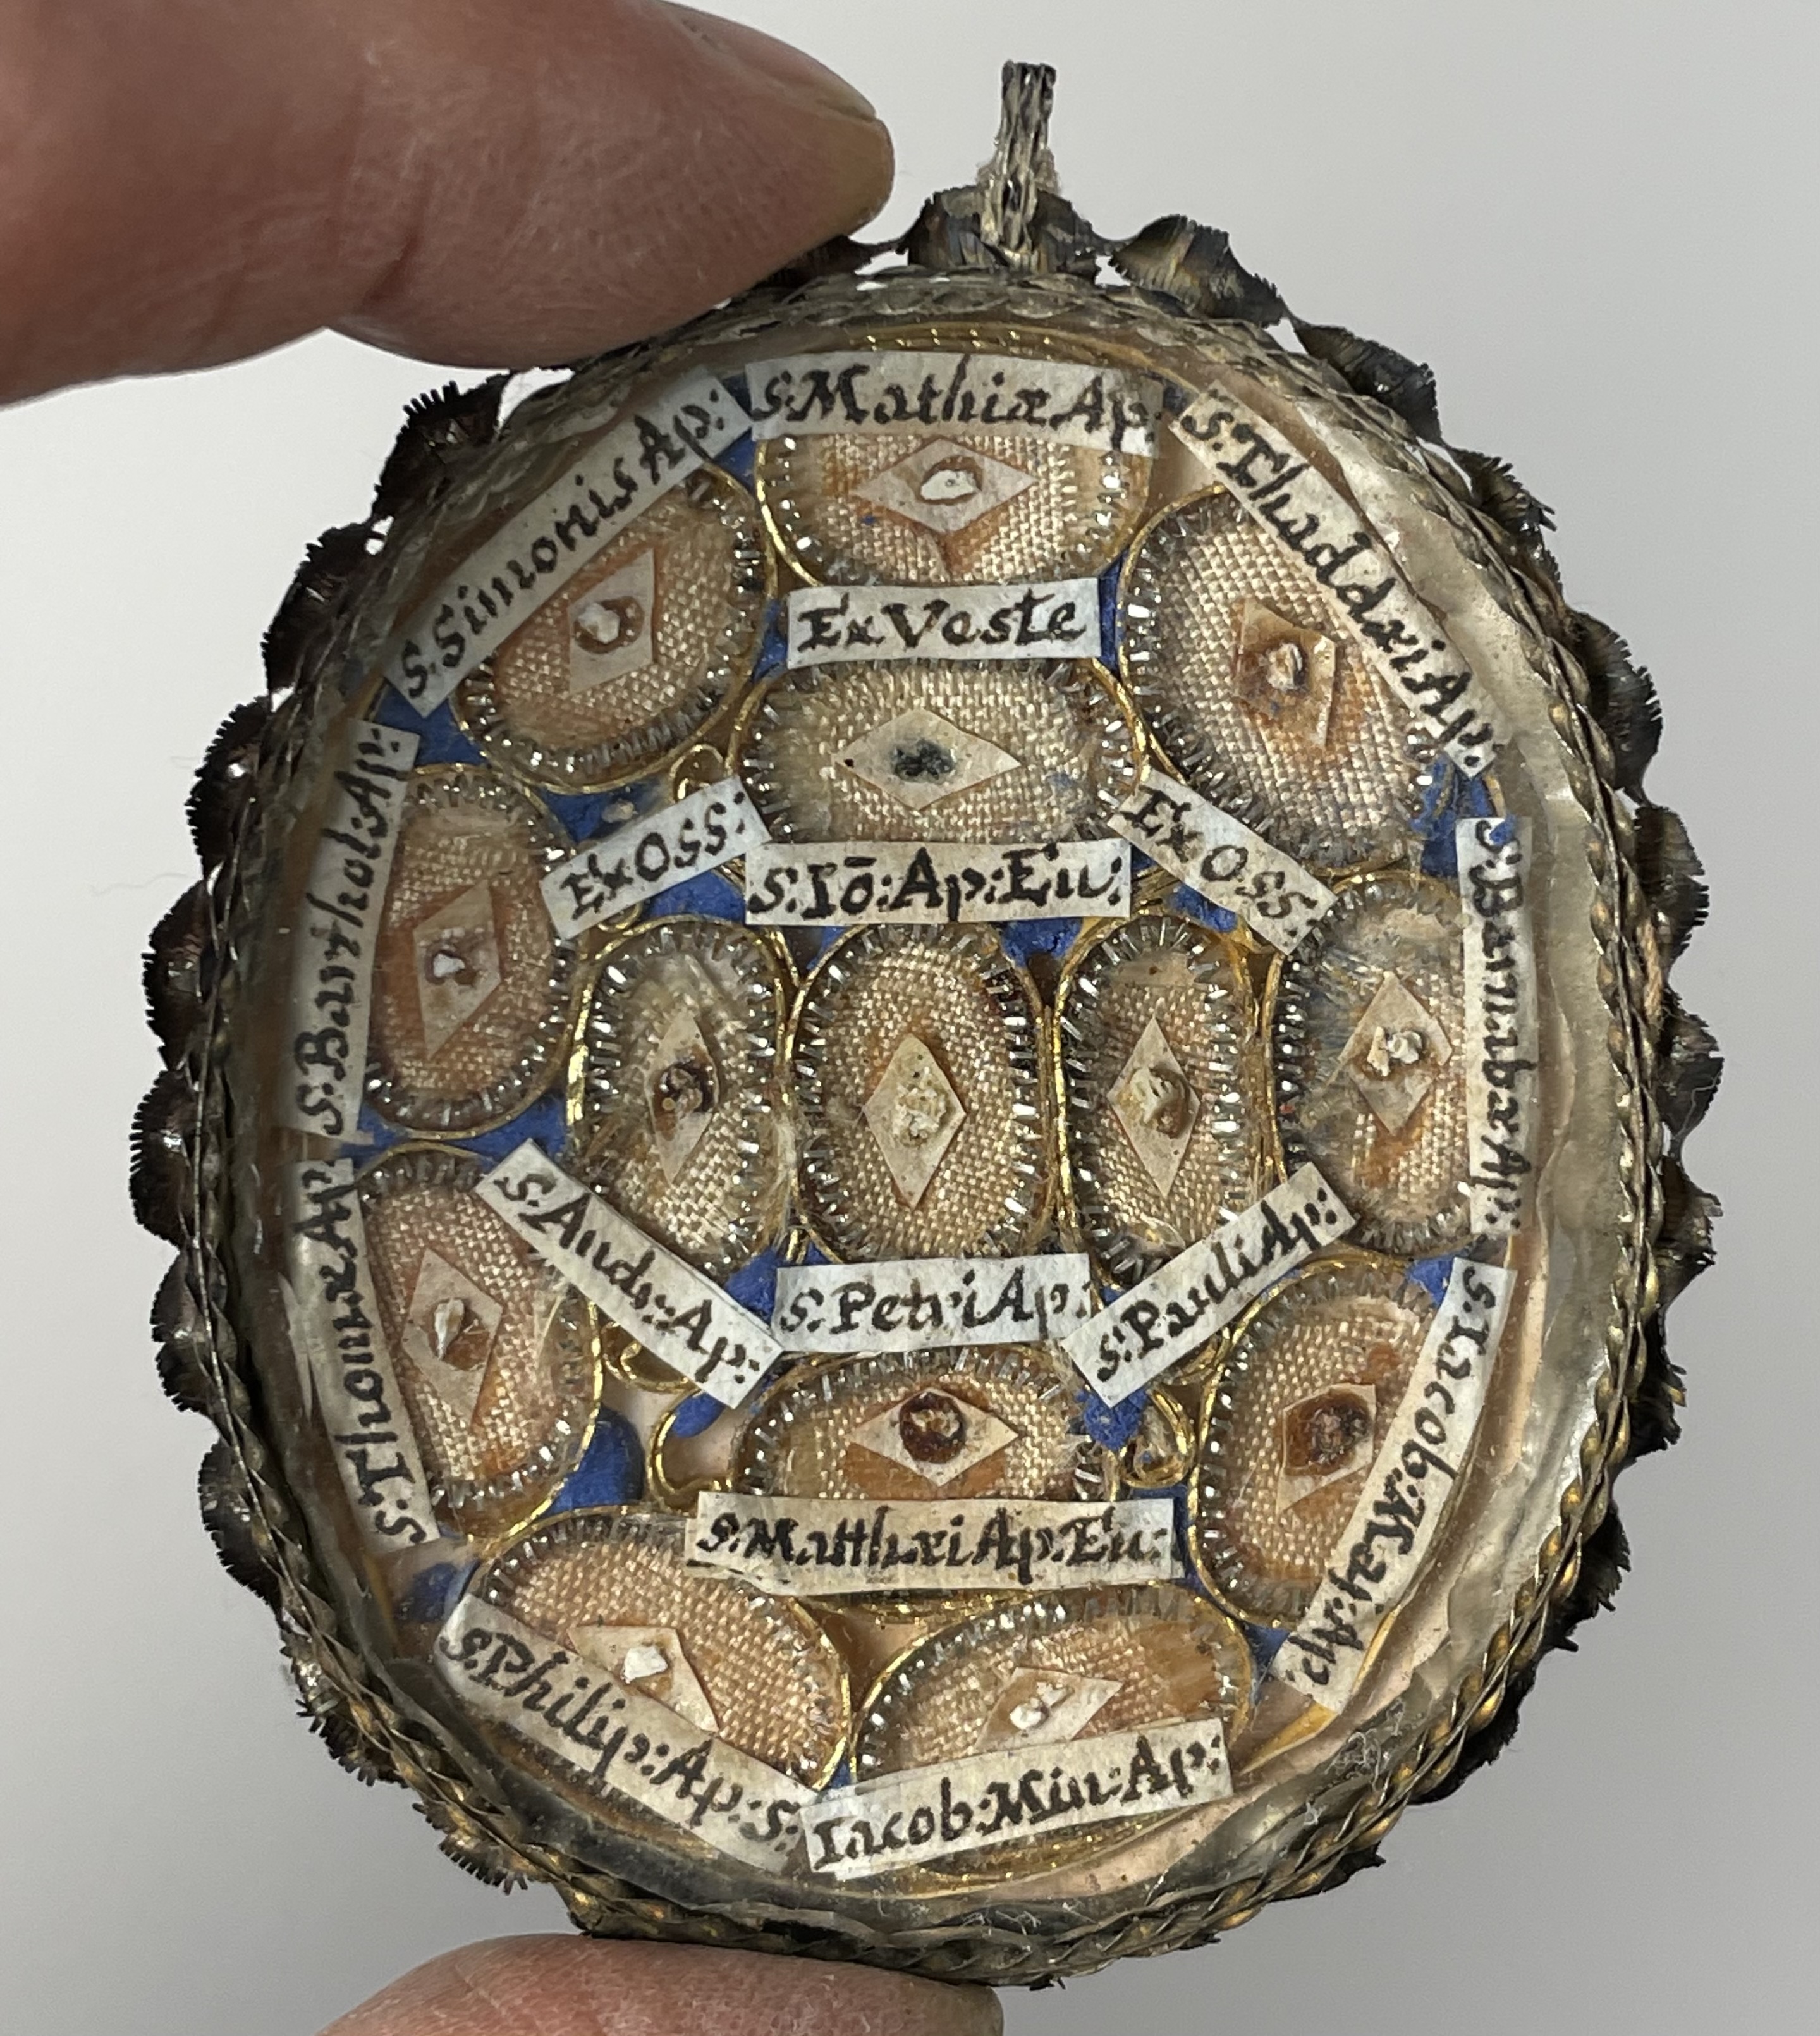 S. Mathiæ Ap:
S. Simonis Ap:
S. Thaddæi Ap:
Ex Veste
S. Bartholi: Ap:
Ex Oss:
S: Iō: Ap: Eu:
Ex Oss:
S. Barnabæ Ap:
S: Thomæ Ap
S. Andr: Ap:
S: Petri Ap:
S: Pauli Ap:
S. Iacob: Maj: Ap:
S: Matthæi Ap: Eu:
S. Philip: Ap:
S: Iacob: Min: Ap: